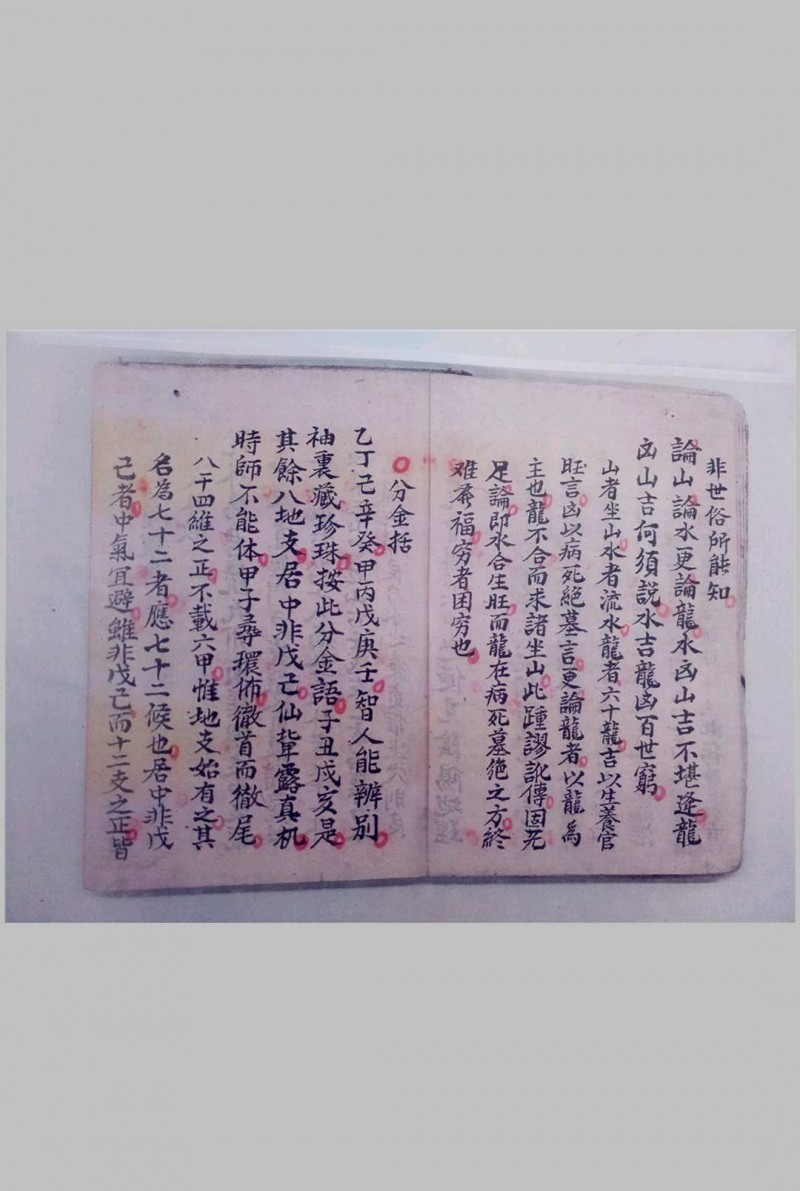 非世俗所能知
論山論水更論龍水凶山吉不堪逢龍
凶山吉何須說水吉龍凶百世窮
山者坐山水者流水龍者六十龍吉以生養官
旺言凶以病死絕墓言更論龍者以龍為
主也龍不合而求諸坐山此踵謬訛傳因无
足論即水合生旺而龍在病死墓絕之方終
难奪福穷者困穷也
分金括
乙丁己辛癸甲丙戊庚壬智人能辨别
袖裏藏珍珠按此分金語子丑戌亥是
其餘八地支居中非戊己仙葷露真机
時師不能体甲子尋環佈徹首而徹尾
八干四維之正不載六甲惟地支始有之其
名為七十二者應七十二候也居中非戊
己者中氣宜避雖非戊己而十二支之正皆